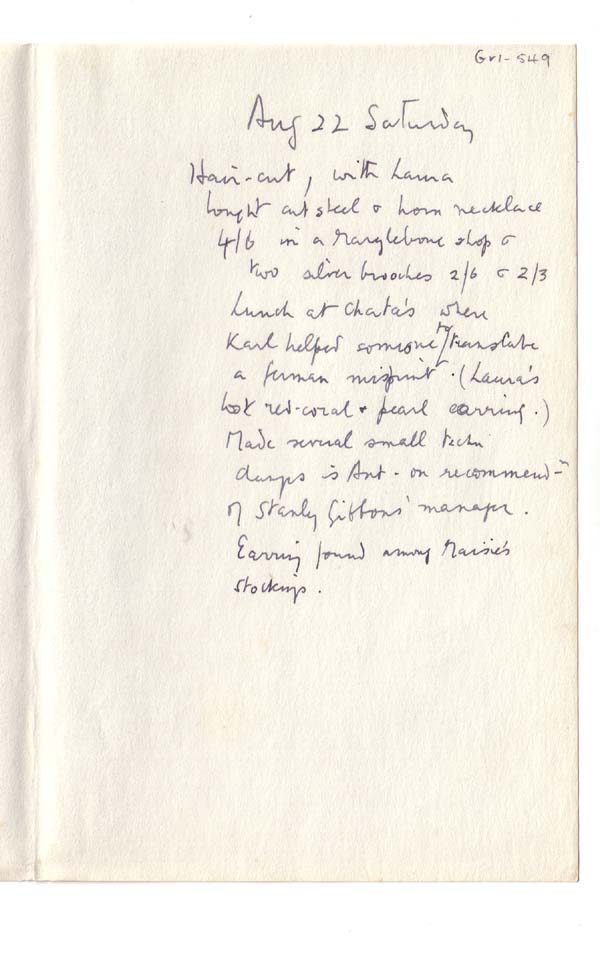 Gr1-549
Aug 22 Saturday
Hair-cut, with Laura
bought cut steel & horn necklace
4/6 in a Marylebone shop &
two silver brooches 2/6 & 2/3
Lunch at Charta's where
Karl helped someone to translate
a German misprint. (Laura's
lost red-coral & pearl earring.)
Made several small techn
changes in Ant - on recommend-n
of Stanly Gibbons' manager.
Earring found among Maisie's
stockings.